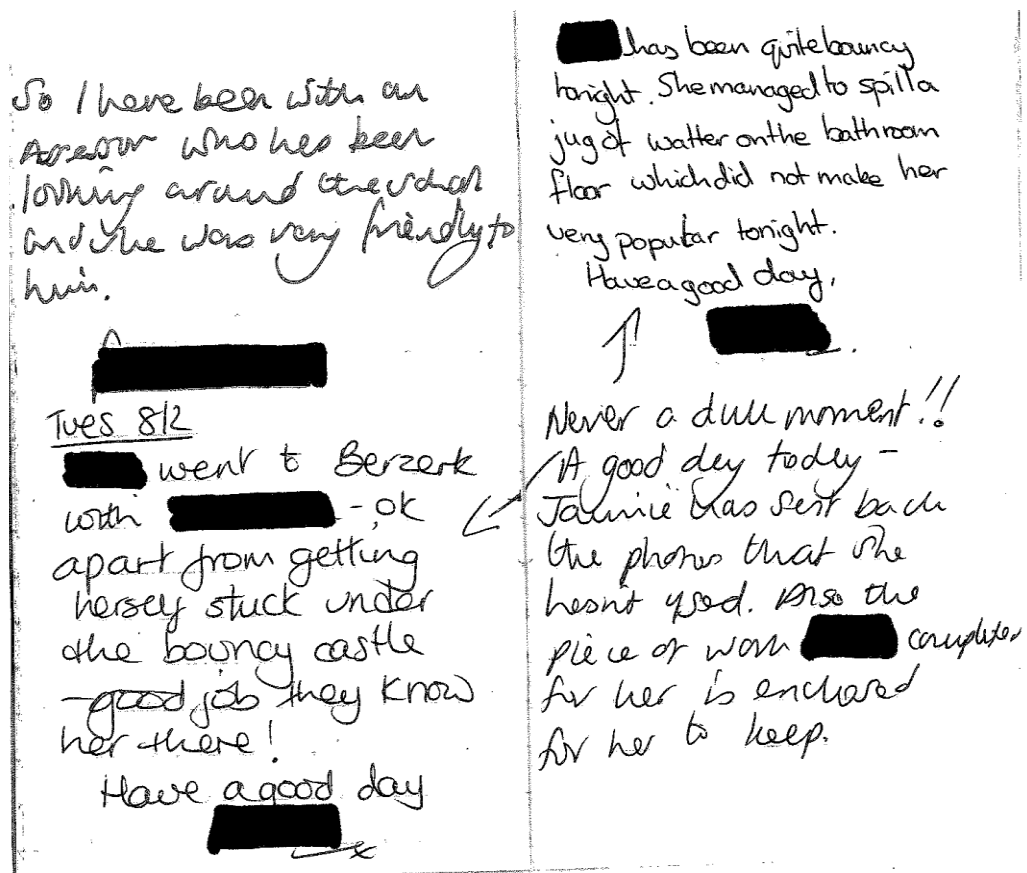 So I have been with an
Assessor who has been
looking around the school
and she was very friendly to
him.
Tues 8/2
went to Berzerk
with - ok
apart from getting
herself stuck under
the bouncy castle
- good job they know
her there!
Have a good day
x
has been quite bouncy
tonight. She managed to spill a
jug of watter on the bathroom
floor which did not make her
very popular tonight.
Have a good day.
Never a dull moment!!
A good day today -
has sent back
the photos that she
hasn't used. Also the
piece of work completed
for her is enclosed
for her to keep.